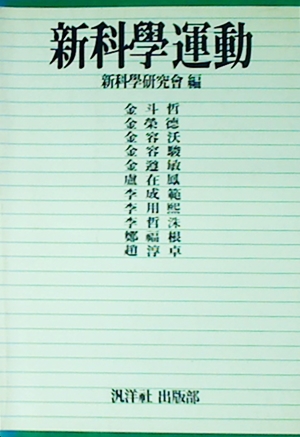 新科學運動
新科學硏究會 編
金斗哲
金榮德
金容沃
金容駿
金遵敏
盧在鳳
李成範
李用熙
李哲洙
鄭福根
趙淳卓
汎洋社 出版部